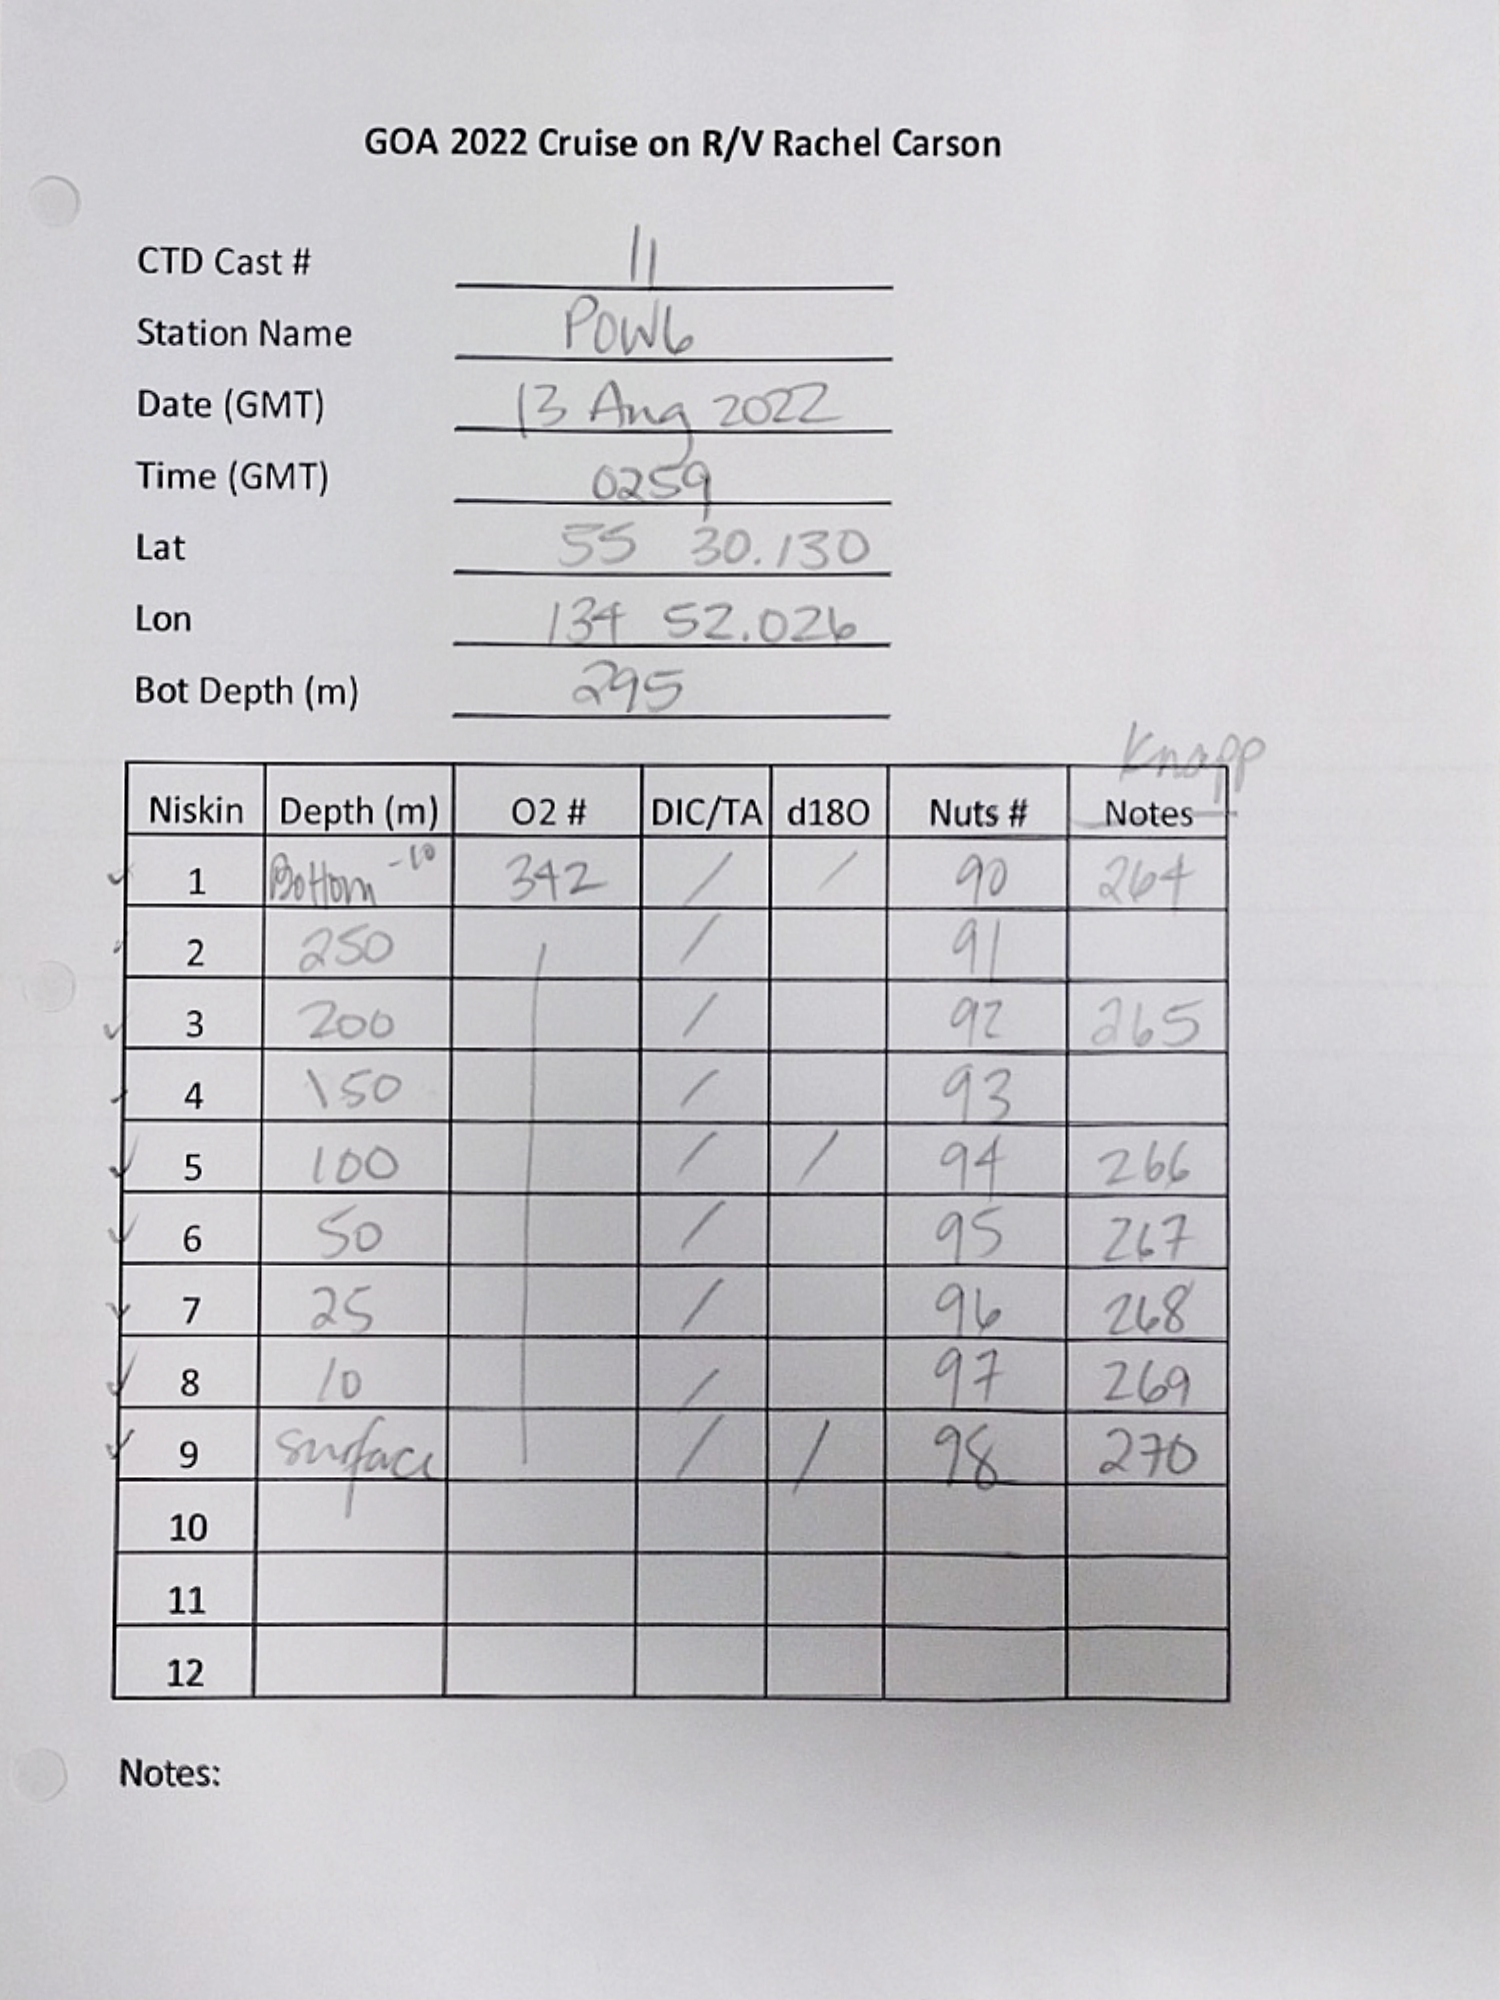 GOA 2022 Cruise on R/V Rachel Carson
CTD Cast # 11
Station Name POW6
Date (GMT) 13 Aug 2022
Time (GMT) 0259
Lat 55 30.130
Lon 134 52.026
Bot Depth (m) 295
Knapp
Niskin Depth (m) O2 # DIC/TA d18O Nuts # Notes
✓ 1 Bottom -10 342 / / 90 264
✓ 2 250 / 91
✓ 3 200 / 92 265
✓ 4 150 / 93
✓ 5 100 / / 94 266
✓ 6 50 / 95 267
✓ 7 25 / 96 268
✓ 8 10 / 97 269
✓ 9 Surface / / 98 270
10
11
12
Notes: